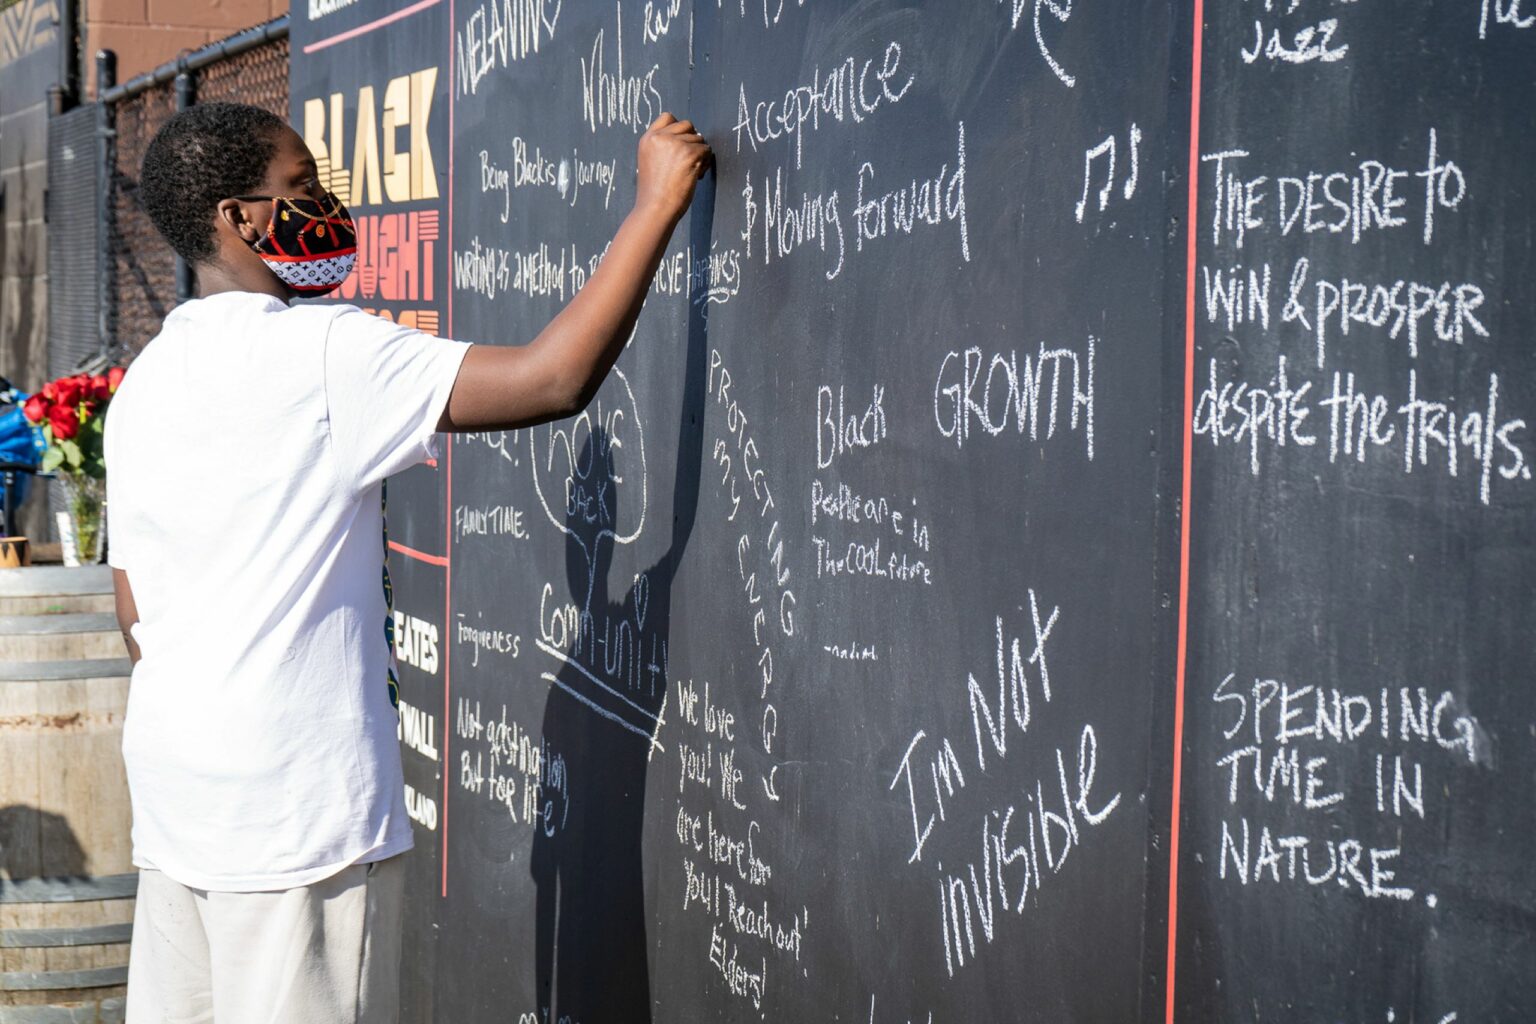 BLACK
EATES
WALL
MELANIN
Rain
Wholeness
Being Black is a journey.
writing as a method to
FAMILY TIME.
Forgiveness
LOVE
BACK
Comm-UNITY
Not gestination,
But for life
Acceptance
& Moving forward
PROTECTING
MY ENERGY
Black
People are in
The COOL future
GROWTH
We love
you! We
are here for
you! Reach out!
Elders!
I'm Not
invisible
Jazz
THE DESIRE to
WIN & PROSPER
despite the trials.
SPENDING
TIME IN
NATURE.